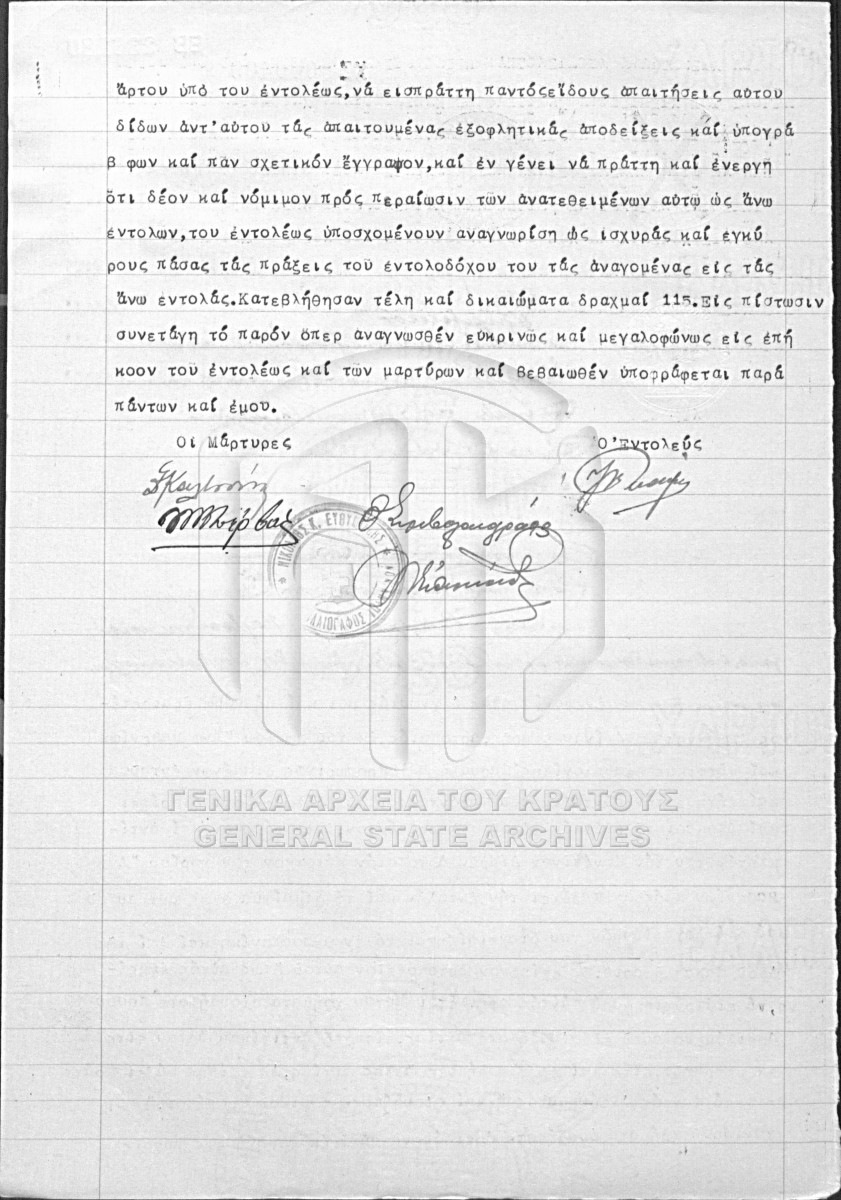 ἄρτου ὑπό του ἐντολέως,νά εἰσπράττη παντόςείδους ἀπαιτήσεις αὐτου
δίδων ἀντ'αὐτου τάς ἀπαιτουμένας ἐξοφλητικάς ἀποδείξεις καί ὑπογρά
β φων καί πᾶν σχετικόν ἔγγραφον,καί ἐν γένει νά πράττη καί ἐνεργῆ
ὅτι δέον καί νόμιμον πρός περαίωσιν τῶν ἀνατεθειμένων αὐτῳ ὡς ἄνω
ἐντολων,του ἐντολέως ὑποσχομένουν ἀναγνωρίση ὡς ἰσχυράς καί ἐγκύ
ρους πάσας τάς πράξεις τοῦ ἐντολοδόχου του τάς ἀναγομένας εἰς τάς
ἄνω ἐντολάς.Κατεβλήθησαν τέλη καί δικαιώματα δραχμαί 115.Εἰς πίστωσιν
συνετάγη τό παρόν ὅπερ ἀναγνωσθέν εὐκρινῶς καί μεγαλοφώνως εἰς ἐπή
κοον τοῦ ἐντολέως καί τῶν μαρτύρων καί βεβαιωθέν ὑπογράφεται παρά
πάντων καί ἐμου.
Οἱ Μάρτυρες Ὁ Ἐντολεύς
Ὁ Συμβολαιογράφος
ΝΙΚΟΛΑΟΣ Κ.
ΓΕΝΙΚΑ ΑΡΧΕΙΑ ΤΟΥ ΚΡΑΤΟΥΣ
GENERAL STATE ARCHIVES